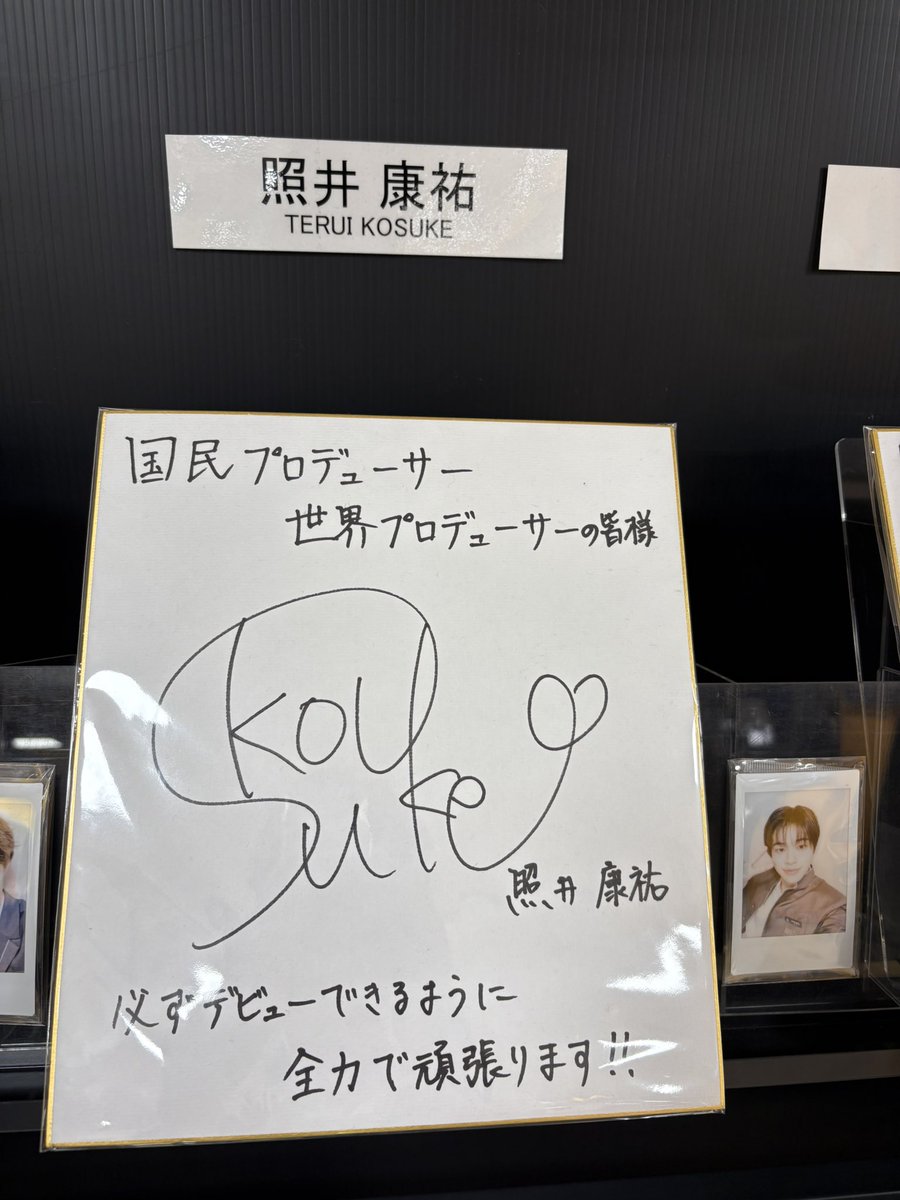 照井 康祐
TERUI KOSUKE
国民プロデューサー
世界プロデューサーの皆様
KOU
SUKe
照井 康祐
必ずデビューできるように
全力で頑張ります!!